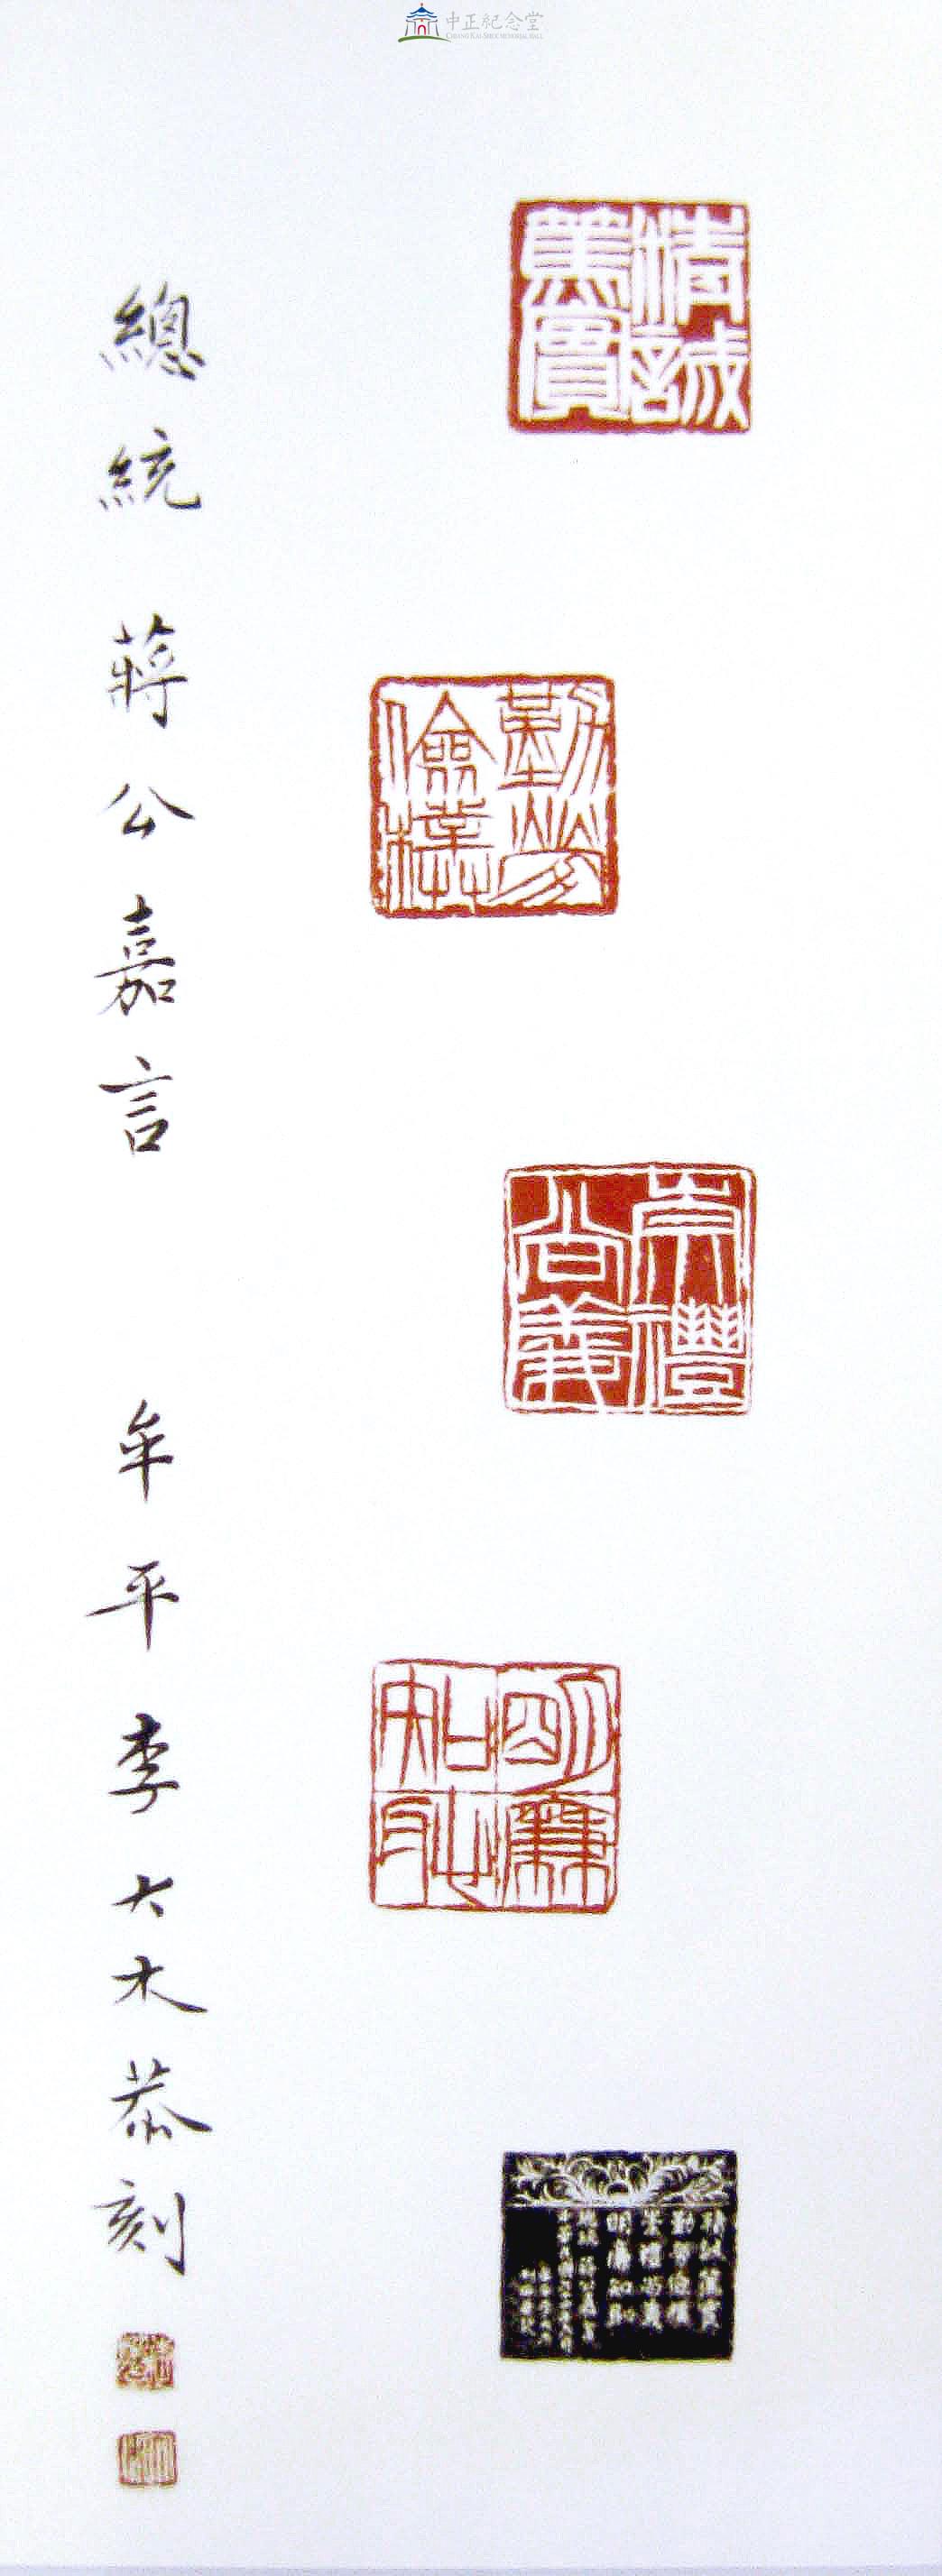 中正紀念堂
CHIANG KAI-SHEK MEMORIAL HALL
精誠篤實
勤勞儉樸
崇禮尚義
明廉知恥
精誠篤實
勤勞儉樸
崇禮尚義
明廉知恥
總統 蔣公嘉言
總統 蔣公嘉言 牟平李大木恭刻